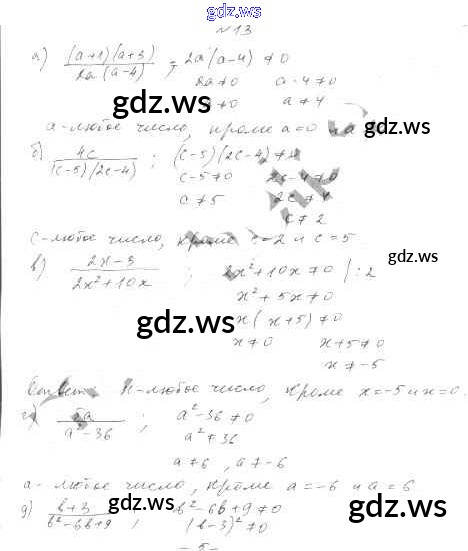 gdz.ws
№13
а) (a+1)(a+3) / 2a(a-4) ; 2a(a-4) ≠ 0
2a≠0 a-4≠0
gdz.ws ≠0 a≠4
gdz.ws
a-любое число, кроме a=0 и a
б) 4c / (c-5)(2c-4) ; (c-5)(2c-4)≠
c-5≠0 2c-4≠0
gdz.ws
c≠5 2c≠4
c≠2
c-любое число, кроме c=2 и c=5
gdz.ws
в) 2x-3 / 2x²+10x ; 2x²+10x≠0 /:2
x²+5x≠0
gdz.ws x(x+5)≠0
gdz.ws
x≠0 x+5≠0
x≠-5
Ответ: x-любое число, кроме x=-5 и x=0.
г) a / a²-36 ; a²-36≠0
a²≠36
a≠6, a≠-6
a-любое число, кроме a=-6 и a=6
д) b+3 / b²-6b+9 ; b²-6b+9≠0
gdz.ws (b-3)²≠0 gdz.ws
-5-